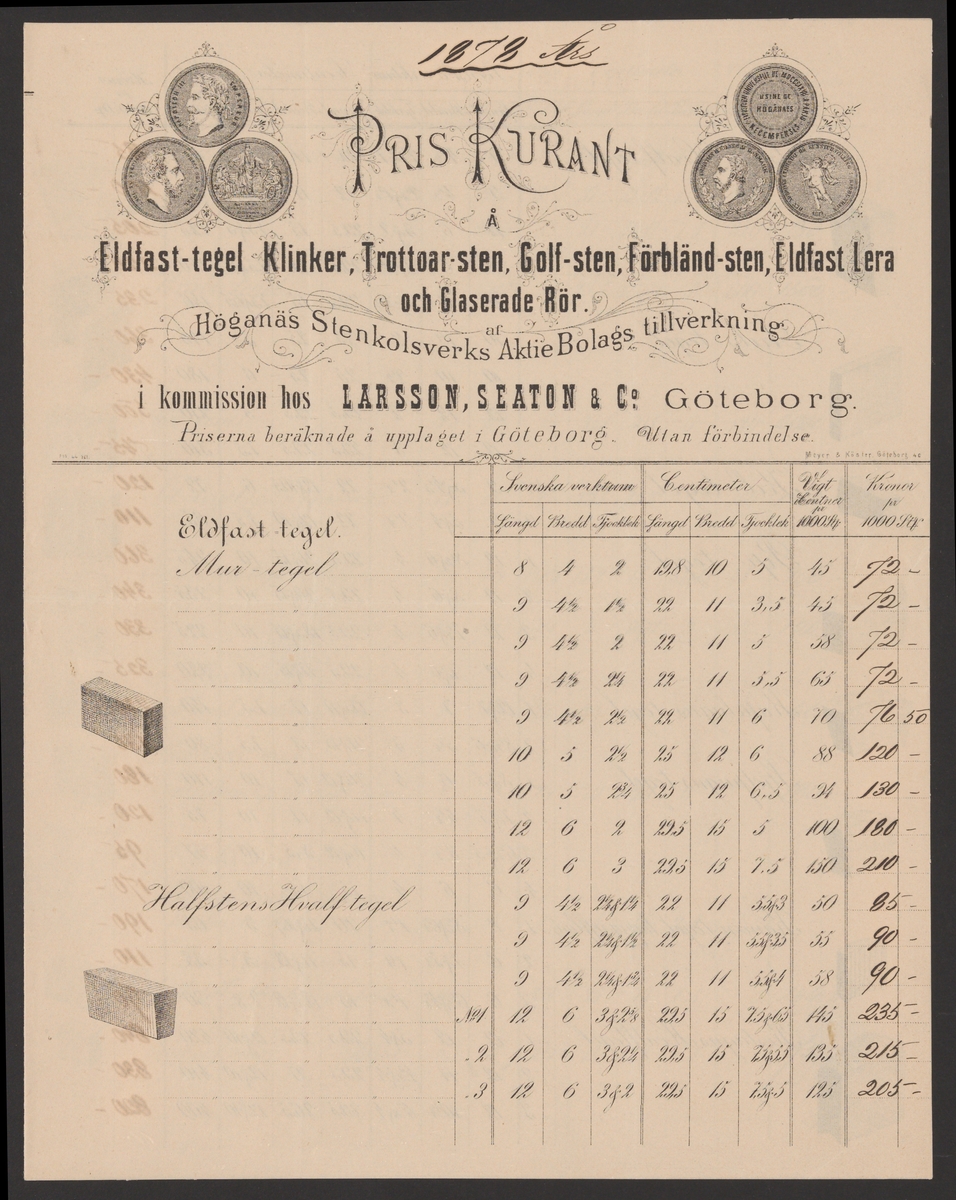 1878 Års
PRIS KURANT
Å
Eldfast-tegel Klinker, Trottoar-sten, Golf-sten, Förbländ-sten, Eldfast Lera
och Glaserade Rör.
af
Höganäs Stenkolsverks AktieBolags tillverkning
i kommission hos LARSSON, SEATON & Co. Göteborg.
Priserna beräknade å upplaget i Göteborg. Utan förbindelse.
Meyer & Köster, Göteborg
Svenska verktum Centimeter Vigt Centner pr 1000 St. Kronor pr 1000 St.
Längd Bredd Tjocklek Längd Bredd Tjocklek
Eldfast tegel.
Mur-tegel 8 4 2 19,8 10 5 45 72 -
" " 9 4½ 1½ 22 11 3,5 45 72 -
" " 9 4½ 2 22 11 5 58 72 -
" " 9 4½ 2¼ 22 11 5,5 65 72 -
" " 9 4½ 2½ 22 11 6 70 76 50
" " 10 5 2½ 25 12 6 88 120 -
" " 10 5 2¾ 25 12 6,5 94 130 -
" " 12 6 2 29,5 15 5 100 180 -
" " 12 6 3 29,5 15 7,5 150 210 -
Halfstens Hvalf-tegel 9 4½ 2¼&1¼ 22 11 5,5&3 50 85 -
" " 9 4½ 2¼&1½ 22 11 5,5&3,5 55 90 -
" " 9 4½ 2¼&1¾ 22 11 5,5&4 58 90 -
" " No 1 12 6 3&2⅝ 29,5 15 7,5&6,5 145 235 -
" " " 2 12 6 3&2¼ 29,5 15 7,5&5,5 135 215 -
" " " 3 12 6 3&2 29,5 15 7,5&5 125 205 -